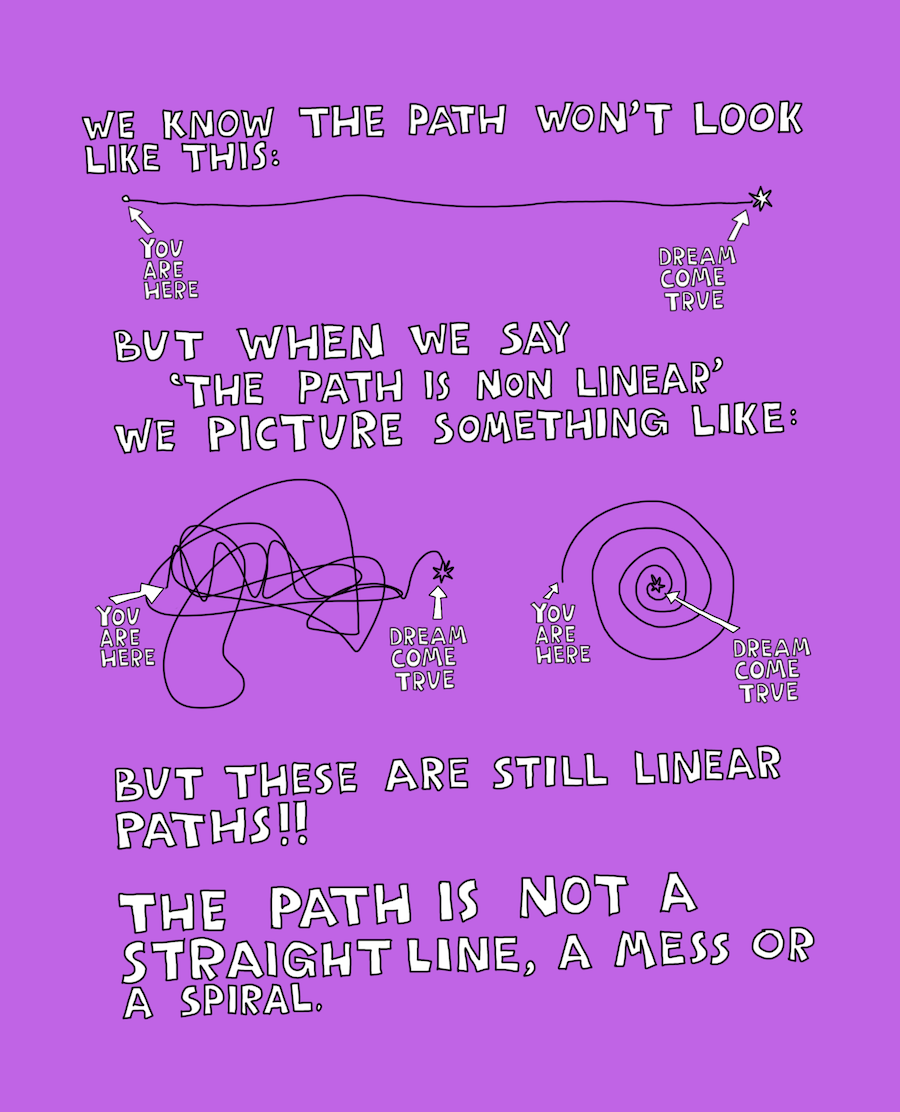 WE KNOW THE PATH WON'T LOOK
LIKE THIS:
YOU
ARE
HERE
DREAM
COME
TRUE
BUT WHEN WE SAY
'THE PATH IS NON LINEAR'
WE PICTURE SOMETHING LIKE:
YOU
ARE
HERE
DREAM
COME
TRUE
YOU
ARE
HERE
DREAM
COME
TRUE
BUT THESE ARE STILL LINEAR
PATHS!!
THE PATH IS NOT A
STRAIGHT LINE, A MESS OR
A SPIRAL.